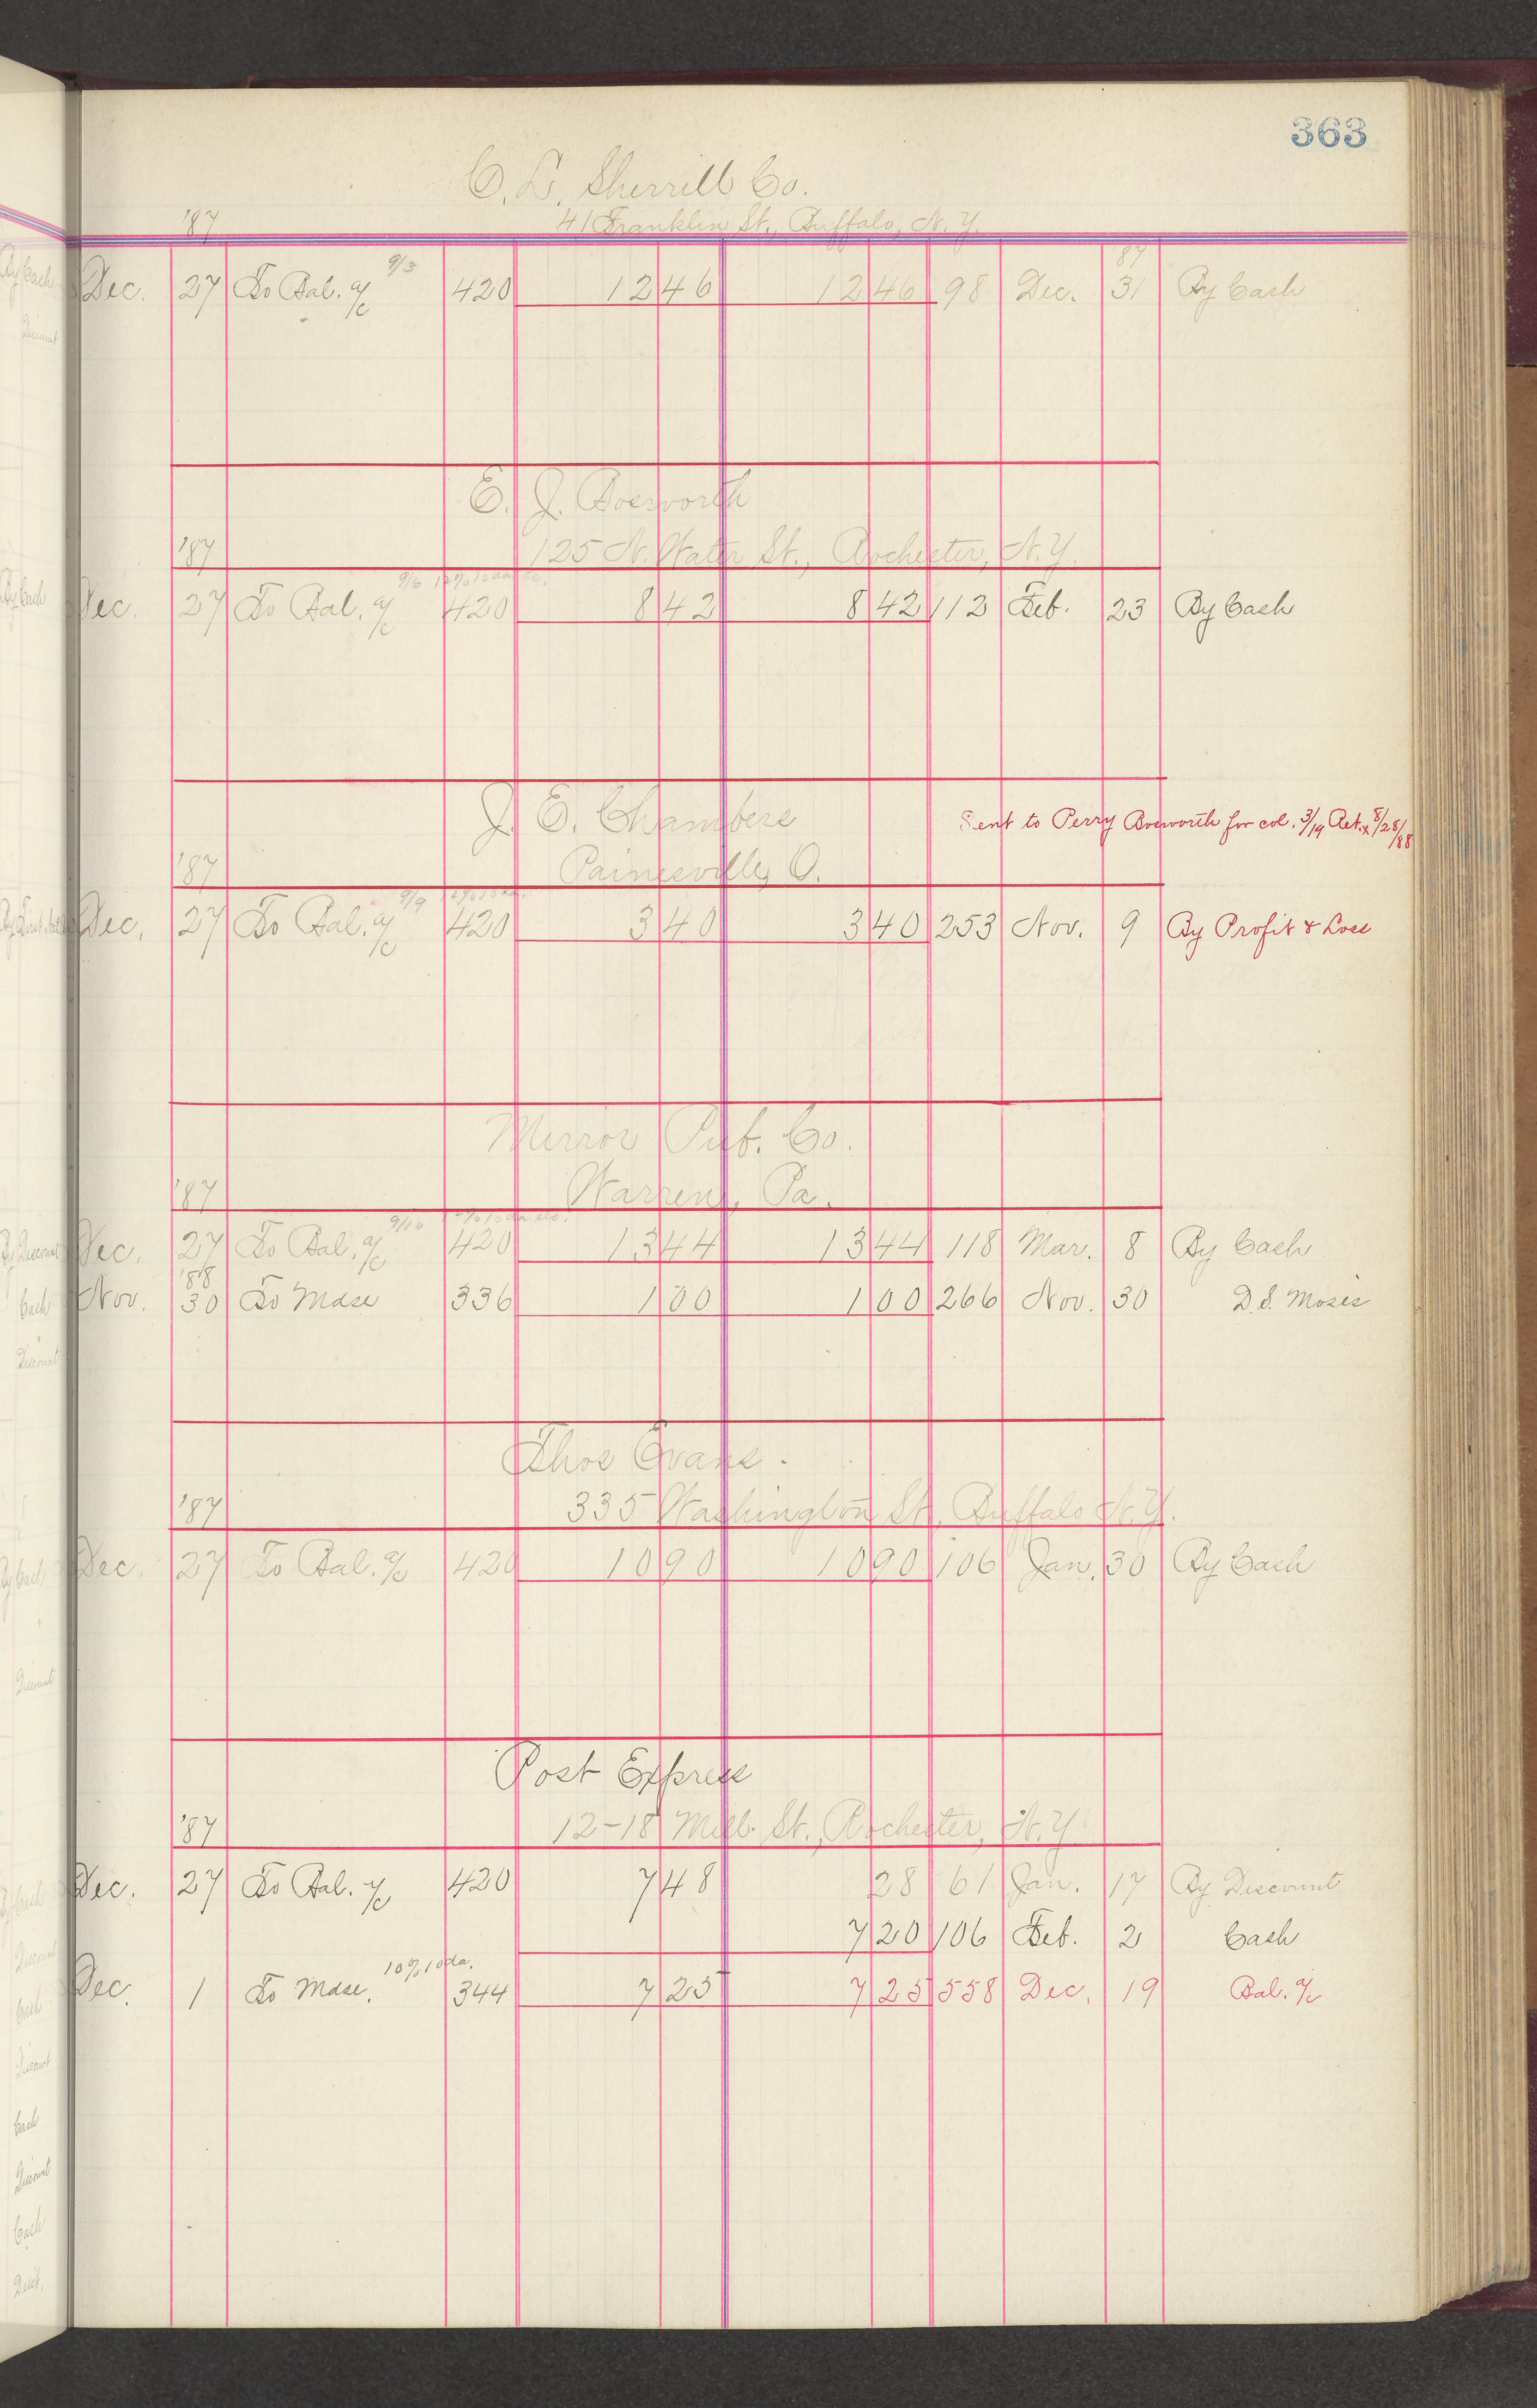 363
C. L. Sherrill Co.
'87 41 Franklin St., Buffalo, N.Y.
'87
Dec. 27 To Bal. a/c 9/3 420 12 46 12 46 98 Dec. 31 By Cash
E. J. Bosworth
'87 125 N. Water St., Rochester, N.Y.
Dec. 27 To Bal. a/c 9/6 420 8 42 8 42 112 Feb. 23 By Cash
J. E. Chambers Sent to Perry Bosworth for col. 3/19 Ret. 8/28/88
'87 Painesville, O.
Dec. 27 To Bal. a/c 9/9 420 3 40 3 40 253 Nov. 9 By Profit & Loss
Mirror Pub. Co.
'87 Warren, Pa.
Dec. 27 To Bal. a/c 9/10 420 13 44 13 44 118 Mar. 8 By Cash
'88
Nov. 30 To Mdse 336 1 00 1 00 266 Nov. 30 D. S. Moses
Thos Evans.
'87 335 Washington St., Buffalo N.Y.
Dec. 27 To Bal. a/c 420 10 90 10 90 106 Jan. 30 By Cash
Post Express
'87 12-18 Mill St., Rochester, N.Y.
Dec. 27 To Bal. a/c 420 7 48 28 61 Jan. 17 By Discount
7 20 106 Feb. 2 Cash
Dec. 1 To Mdse. 10% 10 da. 344 7 25 7 25 558 Dec. 19 Bal. a/c